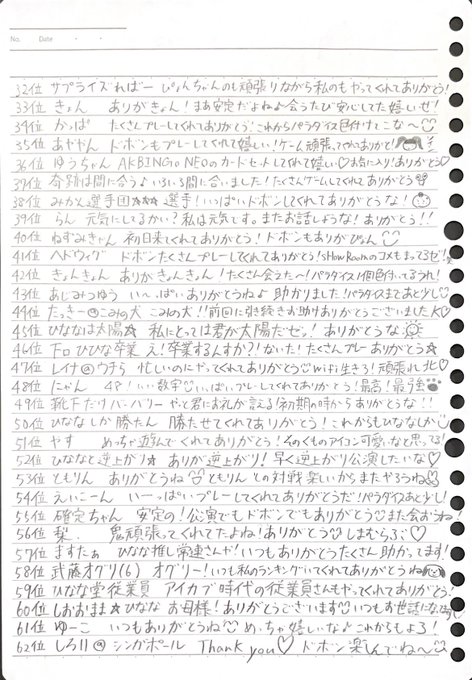 No.
Date
32位 サプライズればー ぴょんちゃんのも頑張りながら私のもやってくれてありがとう!
33位 きょん ありがきょん!まあ安定だよね♪会うたび安心してた嬉しいぜ!
34位 かっぱ たくさんプレーしてくれてありがとう!これからもパラダイス色付けてこな〜
35位 あややん ドボンもプレーしてくれて嬉しい!ゲーム頑張ってくれてありがと!
36位 ゆうちゃん AKBINGO NEOのカードセットしてくれて嬉しい♡お気に入り!ありがとう♡
37位 奇跡は間に合う♪いろいろ間に合いました!たくさんゲームしてくれてありがとう
38位 みかん選手団☆☆☆ 選手!いっぱいドボンしてくれてありがとうな!
39位 らん 元気にしてるかい?私は元気です。またお話ししような!ありがとう!!
40位 ねずみきゃん 初日来てくれてありがとう!ドボンもありがぴょん
41位 ヘドウィグ ドボンたくさんプレーしてくれてありがとう!ShowRoomのコメもまってるゼ!
42位 きょんきょん ありがきょんきょん!たくさん会えた〜!パラダイス1個色付いてるうれ!
43位 あじみつゆう い〜っぱいありがとうね♪助かりました!パラダイスまであと少し
44位 たっきー@こみの犬 こみの犬!!前回に引き続きお助けありがとうございましたK♡
45位 ひななは太陽☆ 私にとっては君が太陽だゼッ!ありがとうな
46位 下口ひひな卒業 え!卒業するんすか?!ないた!たくさんプレーありがとう☆
47位 レイナ@ウチら 忙しいのにやってくれてありがとうwifi生きろ!頑張れ北♡
48位 にゃん 48!いい数字いっぱいプレーしてくれてありがとう!最高!最強
49位 靴下だけバーバリー やっと君にお礼が言える!初期の時からありがとうな!!
50位 ひななしか勝たん 勝たせてくれてありがとう!これからもひななしか
51位 やす めっちゃ遊んでくれてありがとう!そのくものアイコン可愛いなと思ってる!
52位 ひななと逆上がり☆ ありが逆上がり!早く逆上がり公演したいな♡
53位 ともりん ありがとうね ともりんとの対戦楽しいからまたやろうね
54位 えいこーん いーっぱいプレーしてくれてありがとうだ!パラダイスあと少し!
55位 確定ちゃん 安定の!公演でもドボンでもありがとうまた会おうね!
56位 梨. 鬼頑張ってくれてたよね!ありがとうしまむらぶ♡
57位 ますたぁ ひなな推し常連さんが!いつもありがとうたくさん助かってます!
58位 武藤オグリ(6) オグリー!いつも私のランキングいてくれてありがとうね
59位 ひなな堂従業員 アイカブ時代の従業員さんもやってくれてありがとう!
60位 しおおまま☆ひなな お母様!ありがとうございますいつもお世話になってます
61位 ゆーこ いつもありがとうね めっちゃ嬉しいな♪これからもよろ!
62位 しろ11@シンガポール Thank you♡ドボン楽しんでね〜